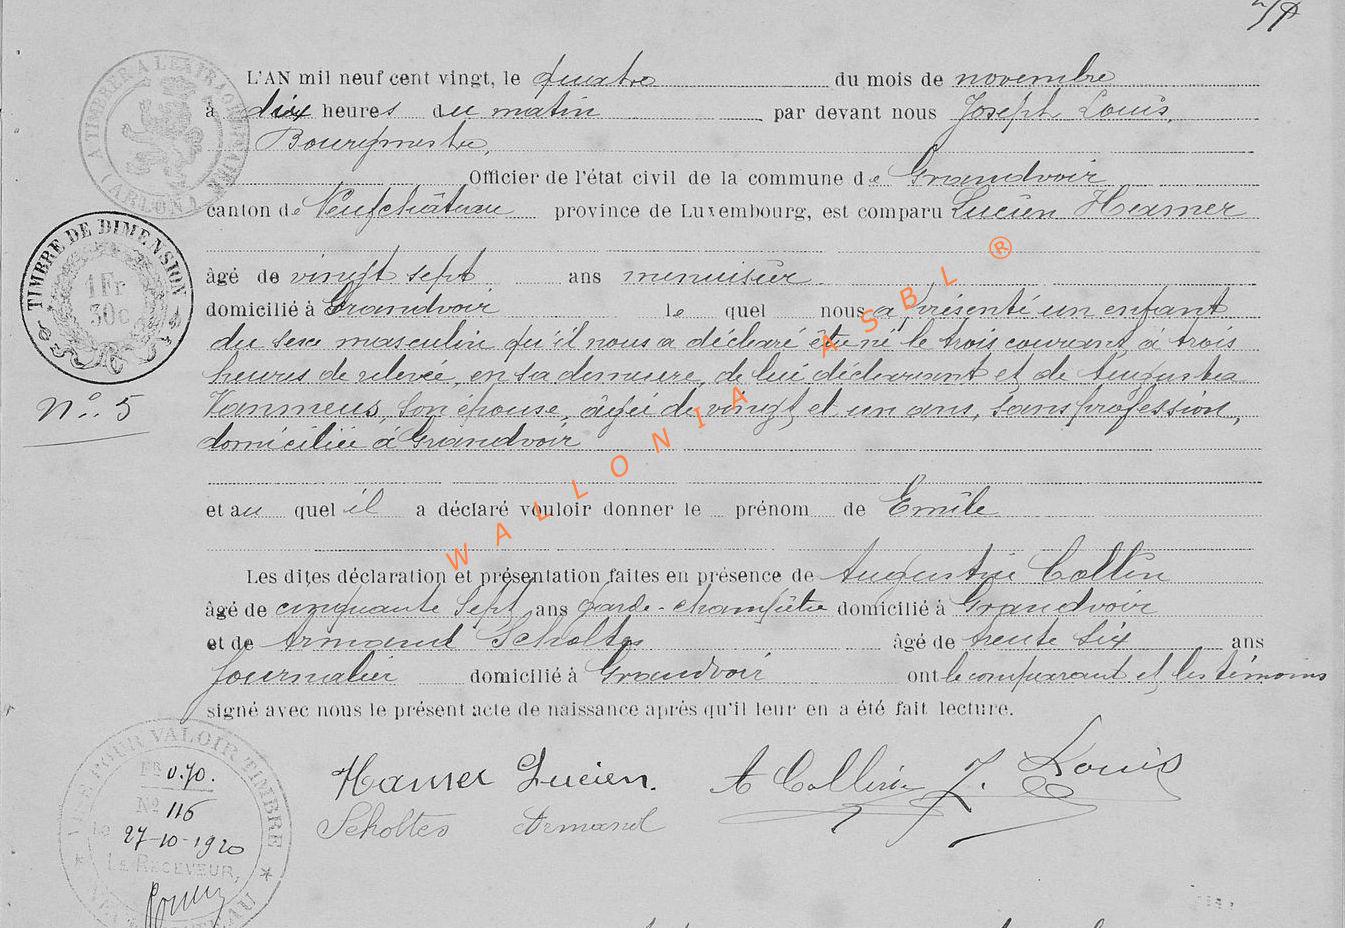 A TIMBRER A L'EXTRAORDINAIRE
(ARLON)
L'AN mil neuf cent vingt, le quatre du mois de novembre
à dix heures du matin par devant nous Joseph Louis,
Bourgmestre,
Officier de l'état civil de la commune de Grandvoir
canton de Neufchâteau province de Luxembourg, est comparu Lucien Hamer
TIMBRE DE DIMENSION
1 Fr
30c
âgé de vingt sept ans menuisier
domicilié à Grandvoir le quel nous a présenté un enfant
du sexe masculin qu'il nous a déclaré être né le trois courant, à trois
heures de relevée, en sa demeure, de lui déclarant et de Augusta
No. 5
son épouse, âgée de vingt et un ans, sans profession,
domiciliée à Grandvoir
et au quel il a déclaré vouloir donner le prénom de Emile
WALLONIA ASBL ®
Les dites déclaration et présentation faites en présence de Collin
âgé de cinquante sept ans garde-champêtre domicilié à Grandvoir
et de Armand Scholtes âgé de trente six ans
Journalier domicilié à Grandvoir ont le comparant et les témoins
signé avec nous le présent acte de naissance après qu'il leur en a été fait lecture.
VISÉ POUR VALOIR TIMBRE
FR 0.70.
No 116
27-10-1920
LE RECEVEUR,
Hamer Lucien. A Collin J. Louis
Scholtes Armand